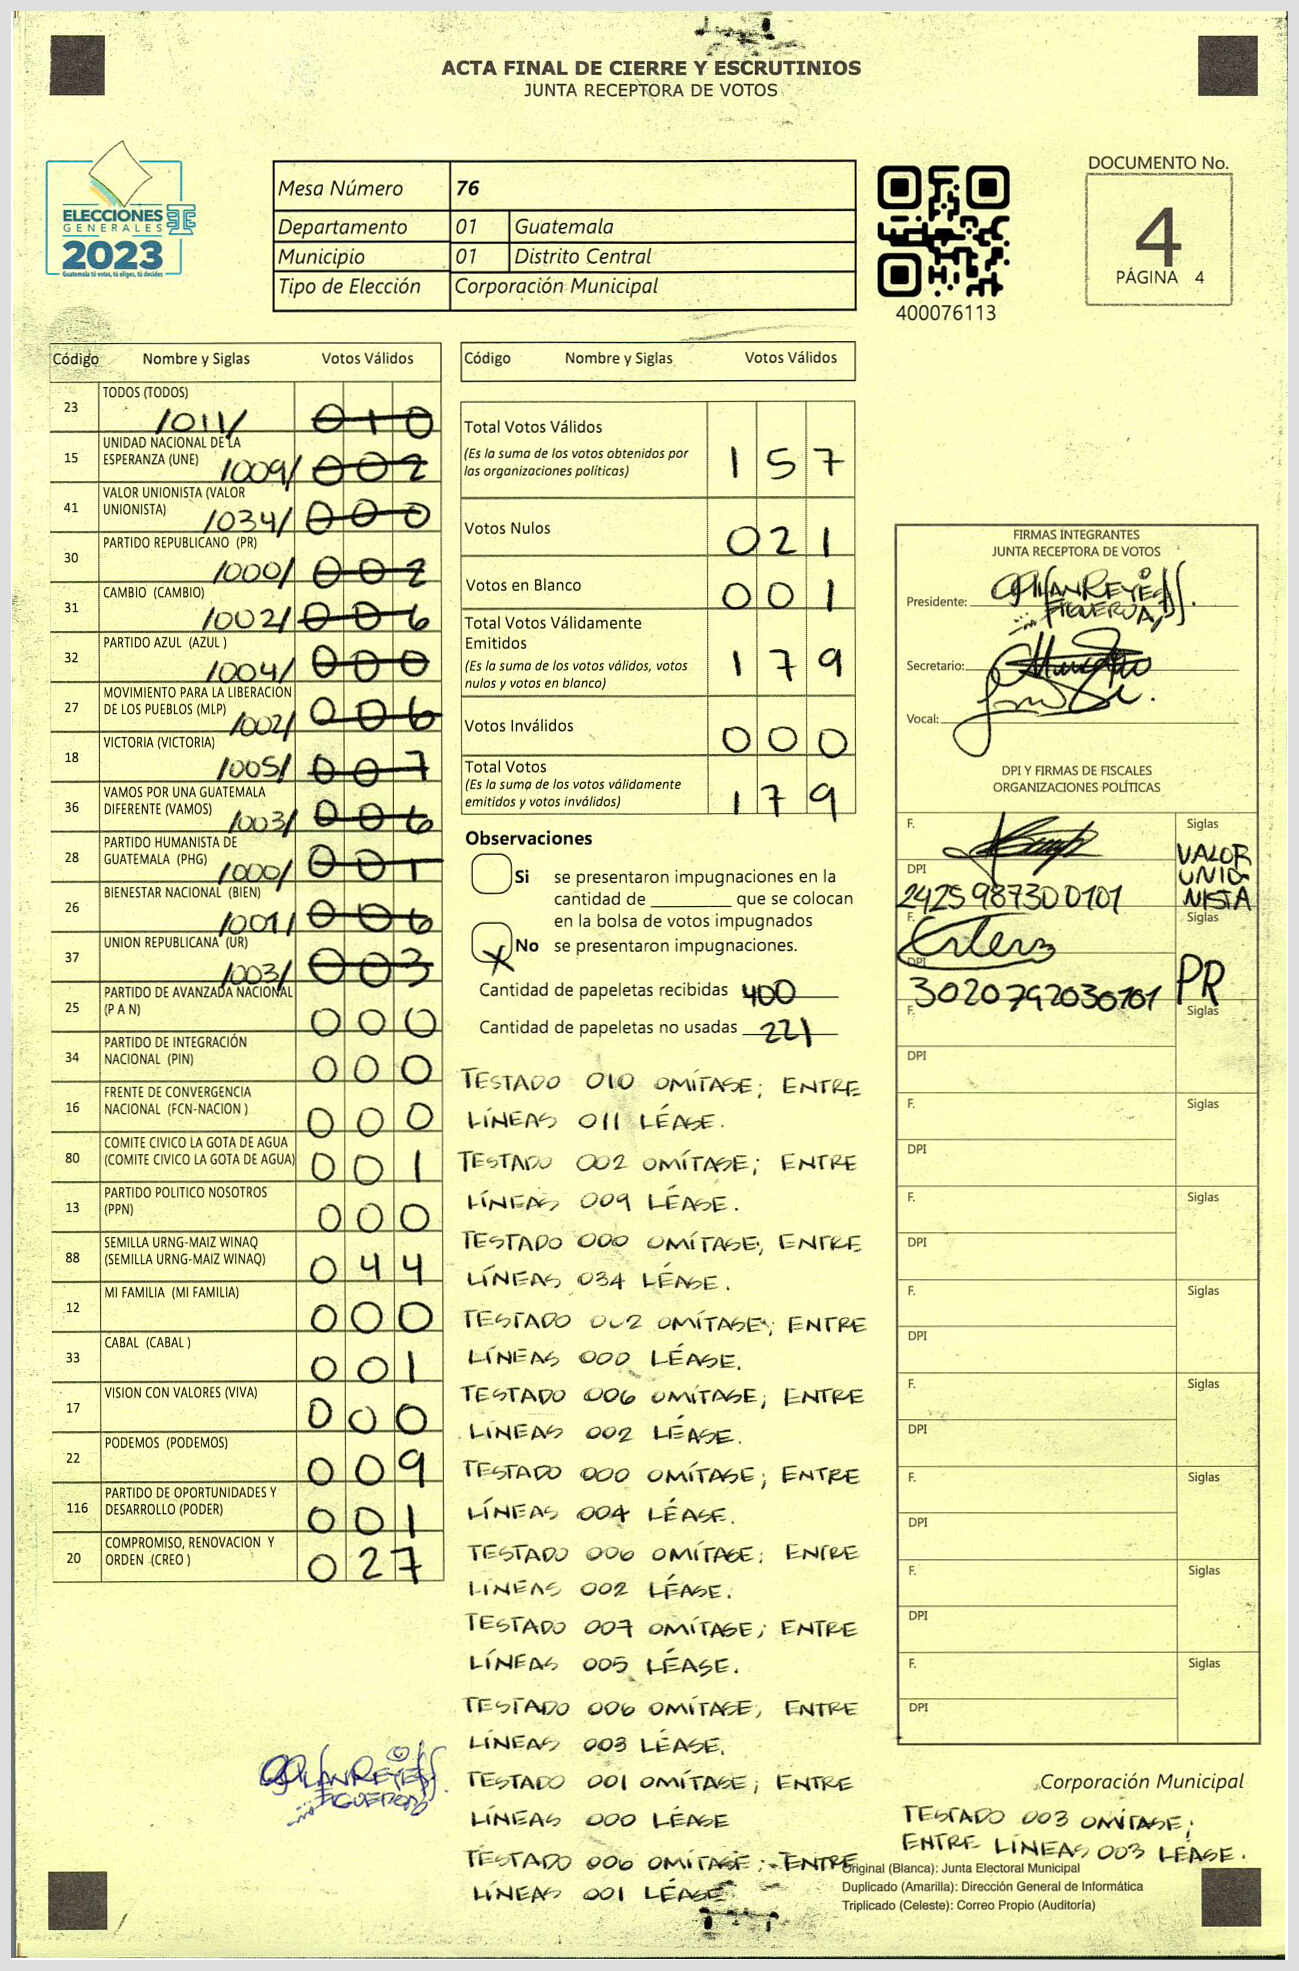 ACTA FINAL DE CIERRE Y ESCRUTINIOS
JUNTA RECEPTORA DE VOTOS
ELECCIONES
GENERALES
2023
Guatemala tú votas, tú eliges, tú decides
Mesa Número 76
Departamento 01 Guatemala
Municipio 01 Distrito Central
Tipo de Elección Corporación Municipal
400076113
DOCUMENTO No.
4
PÁGINA 4
Código Nombre y Siglas Votos Válidos
23 TODOS (TODOS) /011/ 010
15 UNIDAD NACIONAL DE LA ESPERANZA (UNE) /009/ 002
41 VALOR UNIONISTA (VALOR UNIONISTA) /034/ 000
30 PARTIDO REPUBLICANO (PR) /000/ 002
31 CAMBIO (CAMBIO) /002/ 006
32 PARTIDO AZUL (AZUL ) /004/ 000
27 MOVIMIENTO PARA LA LIBERACION DE LOS PUEBLOS (MLP) /002/ 006
18 VICTORIA (VICTORIA) /005/ 007
36 VAMOS POR UNA GUATEMALA DIFERENTE (VAMOS) /003/ 006
28 PARTIDO HUMANISTA DE GUATEMALA (PHG) /000/ 001
26 BIENESTAR NACIONAL (BIEN) /001/ 006
37 UNION REPUBLICANA (UR) /003/ 003
25 PARTIDO DE AVANZADA NACIONAL (P A N) 000
34 PARTIDO DE INTEGRACIÓN NACIONAL (PIN) 000
16 FRENTE DE CONVERGENCIA NACIONAL (FCN-NACION ) 000
80 COMITE CIVICO LA GOTA DE AGUA (COMITE CIVICO LA GOTA DE AGUA) 001
13 PARTIDO POLITICO NOSOTROS (PPN) 000
88 SEMILLA URNG-MAIZ WINAQ (SEMILLA URNG-MAIZ WINAQ) 044
12 MI FAMILIA (MI FAMILIA) 000
33 CABAL (CABAL ) 001
17 VISION CON VALORES (VIVA) 000
22 PODEMOS (PODEMOS) 009
116 PARTIDO DE OPORTUNIDADES Y DESARROLLO (PODER) 001
20 COMPROMISO, RENOVACION Y ORDEN (CREO ) 027
Código Nombre y Siglas Votos Válidos
Total Votos Válidos
(Es la suma de los votos obtenidos por
las organizaciones políticas) 157
Votos Nulos 021
Votos en Blanco 001
Total Votos Válidamente
Emitidos
(Es la suma de los votos válidos, votos
nulos y votos en blanco) 179
Votos Inválidos 000
Total Votos
(Es la suma de los votos válidamente
emitidos y votos inválidos) 179
Observaciones
Si se presentaron impugnaciones en la
cantidad de ________ que se colocan
en la bolsa de votos impugnados
X No se presentaron impugnaciones.
Cantidad de papeletas recibidas 400
Cantidad de papeletas no usadas 221
TESTADO 010 OMÍTASE; ENTRE
LÍNEAS 011 LÉASE.
TESTADO 002 OMÍTASE; ENTRE
LÍNEAS 009 LÉASE.
TESTADO 000 OMÍTASE, ENTRE
LÍNEAS 034 LÉASE.
TESTADO 002 OMÍTASE; ENTRE
LÍNEAS 000 LÉASE.
TESTADO 006 OMÍTASE; ENTRE
LÍNEAS 002 LÉASE.
TESTADO 000 OMÍTASE; ENTRE
LÍNEAS 004 LÉASE.
TESTADO 006 OMÍTASE; ENTRE
LÍNEAS 002 LÉASE.
TESTADO 007 OMÍTASE; ENTRE
LÍNEAS 005 LÉASE.
TESTADO 006 OMÍTASE, ENTRE
LÍNEAS 003 LÉASE.
TESTADO 001 OMÍTASE; ENTRE
LÍNEAS 000 LÉASE
TESTADO 006 OMÍTASE; ENTRE
LÍNEAS 001 LÉASE
FIRMAS INTEGRANTES
JUNTA RECEPTORA DE VOTOS
Presidente:
FIGUEROA
Secretario:
Vocal:
DPI Y FIRMAS DE FISCALES
ORGANIZACIONES POLÍTICAS
F. Siglas
VALOR
UNIO
NISTA
DPI
2425987300101
F. Siglas
DPI PR
3020792030101
F. Siglas
DPI
F. Siglas
DPI
F. Siglas
DPI
F. Siglas
DPI
F. Siglas
DPI
F. Siglas
DPI
F. Siglas
DPI
F. Siglas
DPI
FIGUEROA
Corporación Municipal
TESTADO 003 OMÍTASE;
ENTRE LÍNEAS 003 LÉASE.
Original (Blanca): Junta Electoral Municipal
Duplicado (Amarilla): Dirección General de Informática
Triplicado (Celeste): Correo Propio (Auditoría)